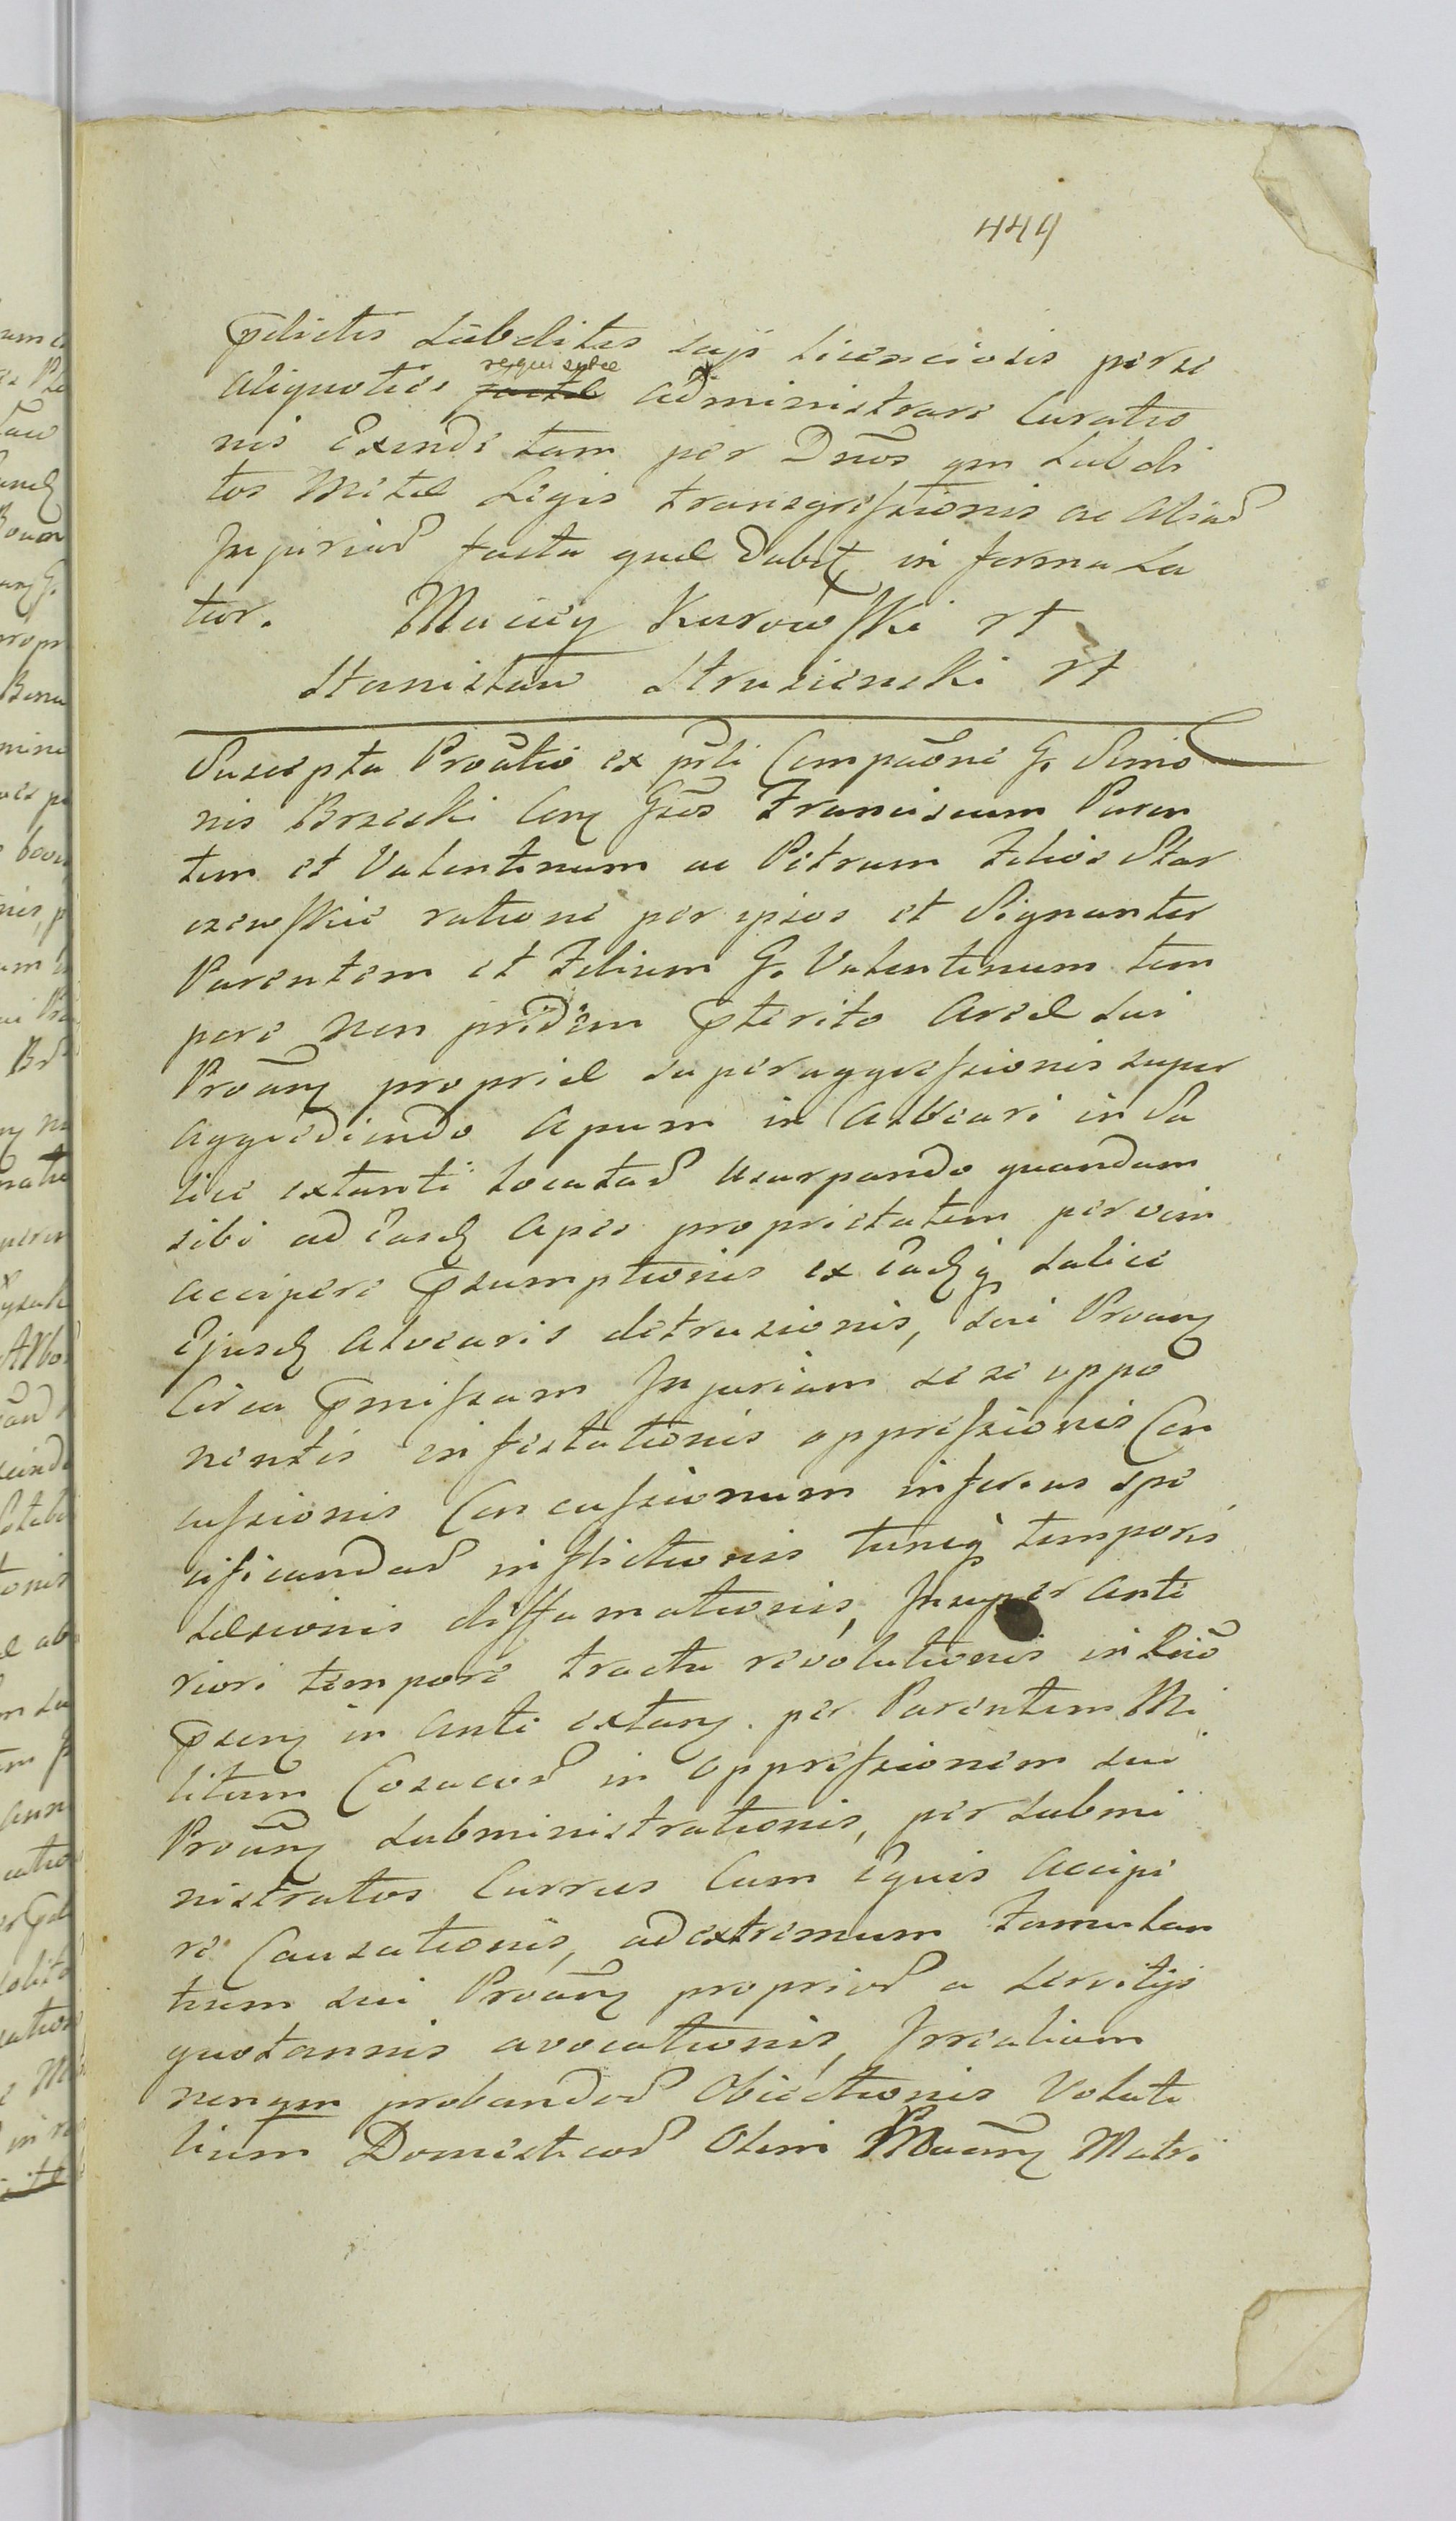 449
p̄dictis Subditis suis licenciosis per se
aliquoties factae requisitae administrare Curatio
nis Exinde tam per Dnōs qm Subdi
tos Metae Legis transgressionis ac aliar
Injuriar facta quae dabit in forma La
tior. Maciey Kurowski
Stanisław Strusienski
Suscepta Proātio ex prsti Compaōne G. Simo
nis Brzeski Conq Gsos Franciscum Paren
tem et Valentinum ac Petrum Filios Star
czewskie ratione per ipsos et Signanter
Parentem et Filium G. Valentinum tem
pore non pridem p̄terito areae sui
Proānq propriae superaggressionis super
aggrediendo Apum in Alveari in Sa
lice extanti locatar usurpando quandam
sibi ad easdq Apes proprietatem per vim
accipere p̄sumptionis ex eadqq salice
Ejusdq Alvearis detrusionis, sui Proanq
Circa p̄missam Injuriam sese oppo
nentis infestationis oppressionis Con
cussionis Con cussionum inferius spe
cificandar inflictionis tuncq temporis
Laesionis diffamationis, Insuper ante
riori tempore tractu revolutionis in Rno
p̄senq in ante extanq. per Parentem Mi
litum Cosacor in oppressionem sui
Proānq subministrationis, per submi
nistratos Currus Cum Equis accipe
re Causationis, ad extremum Famulan
tium sui Proānq proprior a servitijs
quotannis avocationis, Irrealium
nenqm probandor Obiectionis Volati
lium Domesticor Olim Matri